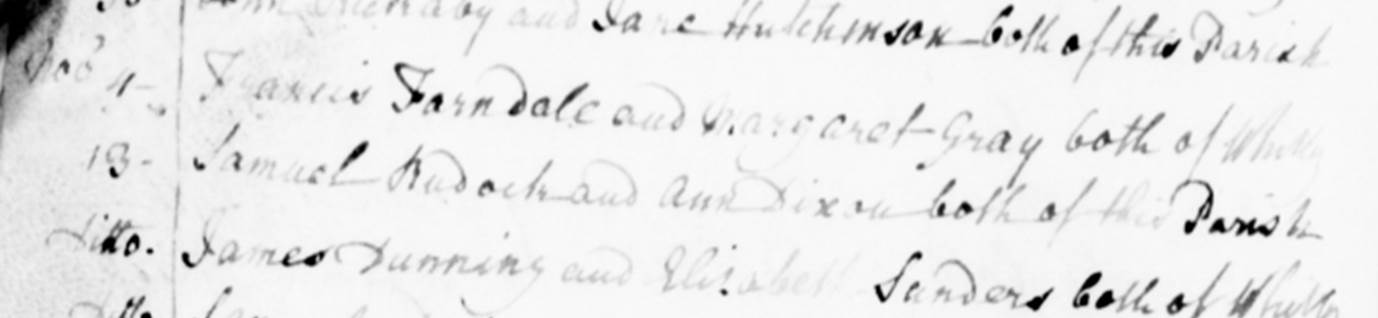 and Jane Hutchinson both of this Parish
Nov 4 Francis Farndale and Margaret Gray both of Whitby
13 Samuel Rudock and Ann Dixon both of this Parish
ditto. James Dunning and Elizabeth Sanders both of Whitby
ditto